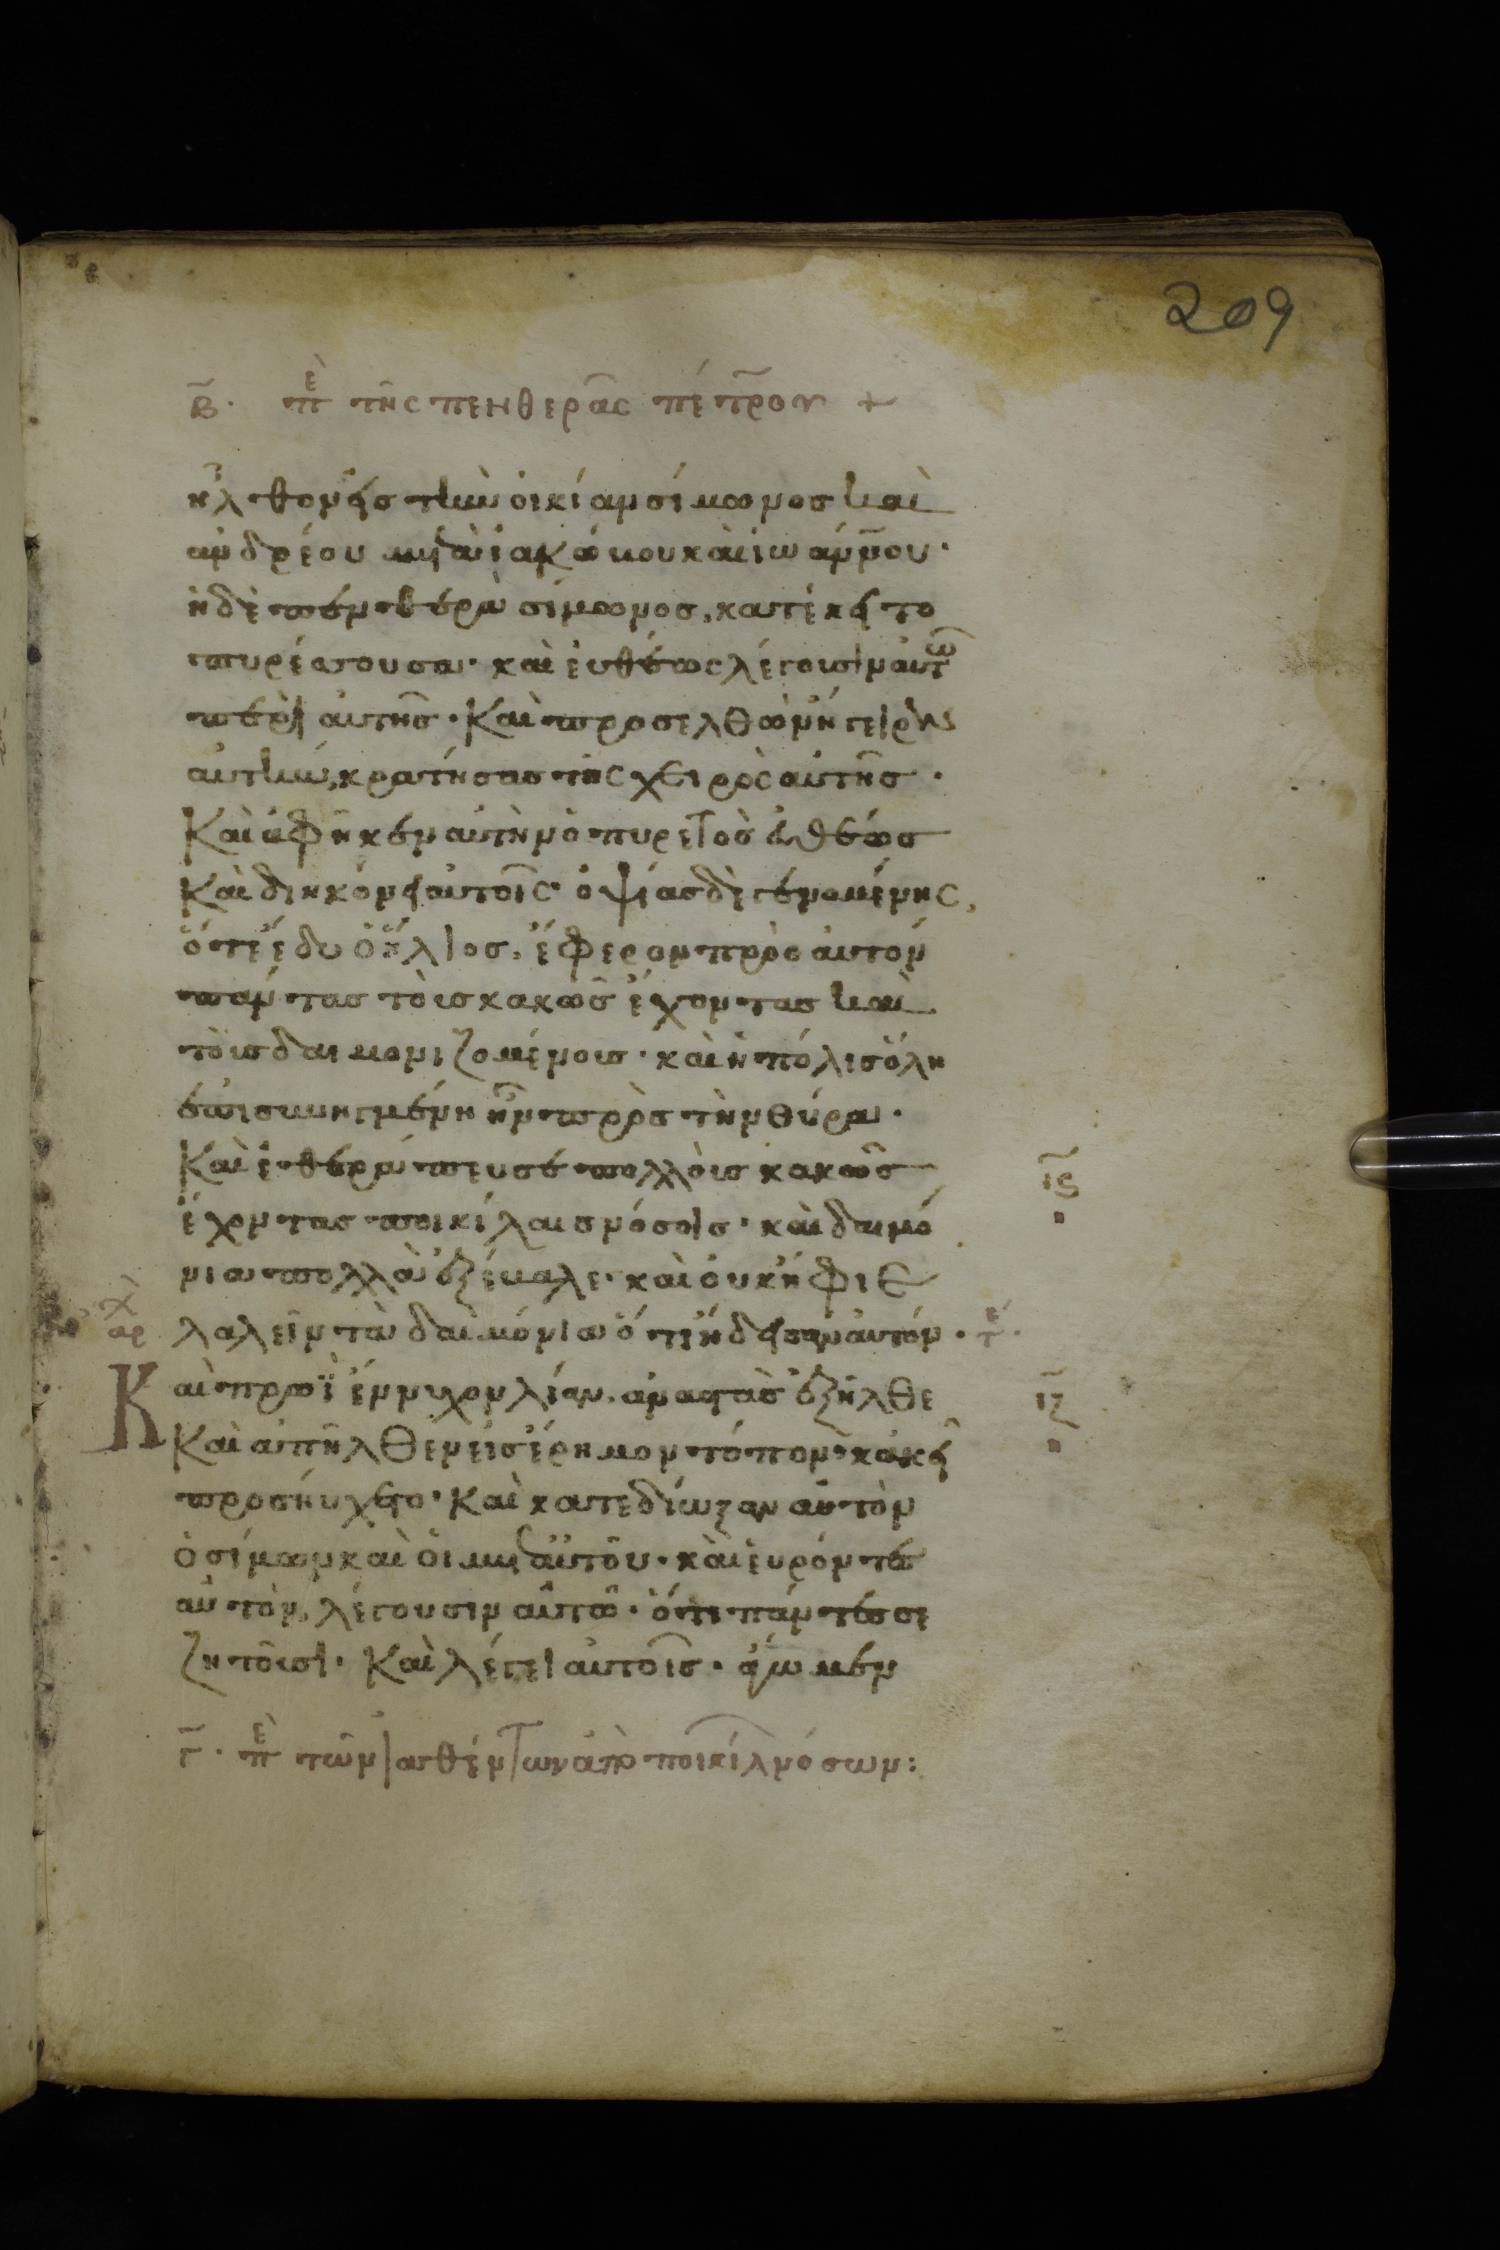 209
β̅· πὲ τῆς πενθερᾶς πέτρου +
ἦλθον εἰσ τὴν οἰκίαν σίμωνοσ καὶ
ανδρέου μετὰ ϊακώμου καὶ ἰωάννου·
ἡ δὲ πενθερὰ σίμωνοσ, κατέκειτο
πυρέσσουσα· καὶ ἐυθέωςλέγουσιν αὐτῶ
περὶ αυτῆσ· Καὶ προσελθὼν ἤγειρεν
αὐτὴν, κρατήσασ τῆς χειρὸς αὐτῆσ·
Καὶ ἀφῆκεν αὐτὴν ὁ πυρετὸσ ἐυθέωσ
Καὶ διηκόνει αὐτοῖς· ὀψίασ δὲ γενομένης,
ὅτε ἔδυ ὁ ἥλιοσ, ἔφερον πρὸσ ἀυτὸν
πάντασ τοὺσ κακῶσ ἔχοντασ καὶ
τοὺσ δαιμονιζομένουσ· καὶ ἡ πόλισ ὅλη
ἐπισυνηγμένη ἦν πρὸσ τὴν θύραν·
Καὶ ἐθεράπευσε πολλοὺσ κακῶσ
ι̅ϛ
ἔχοντασ ποικίλαισ νόσοισ· καὶ δαιμό
νια πολλὰ ἐξέβαλε· καὶ ὀυκ ἤφιε
ἀρχ
λαλεῖν τὰ δαιμόνια ὅτι ἤδεισαν ἀυτόν· τέ·
Καὶ πρωῒ ἔννυχον λίαν, αναστὰσ ἐξῆλθε
ι̅ζ
Καὶ απῆλθεν εἰσ ἔρημον τόπον κἀκεῖ
προσηύχετο· Καὶ κατεδίωξαν αὐτὸν
ὁ σίμων καὶ ὁι μετ αὐτοῦ· καὶ ἑυρόντεσ
αὐτὸν, λέγουσιν αὐτῶ· ὅτι πάντεσ σε
ζητοῦσι· Καὶ λέγει αὐτοῖσ· ἄγωμεν
γ̅· πὲ τῶν ἰαθέντων ἀπὸ ποικίλ νόσων: